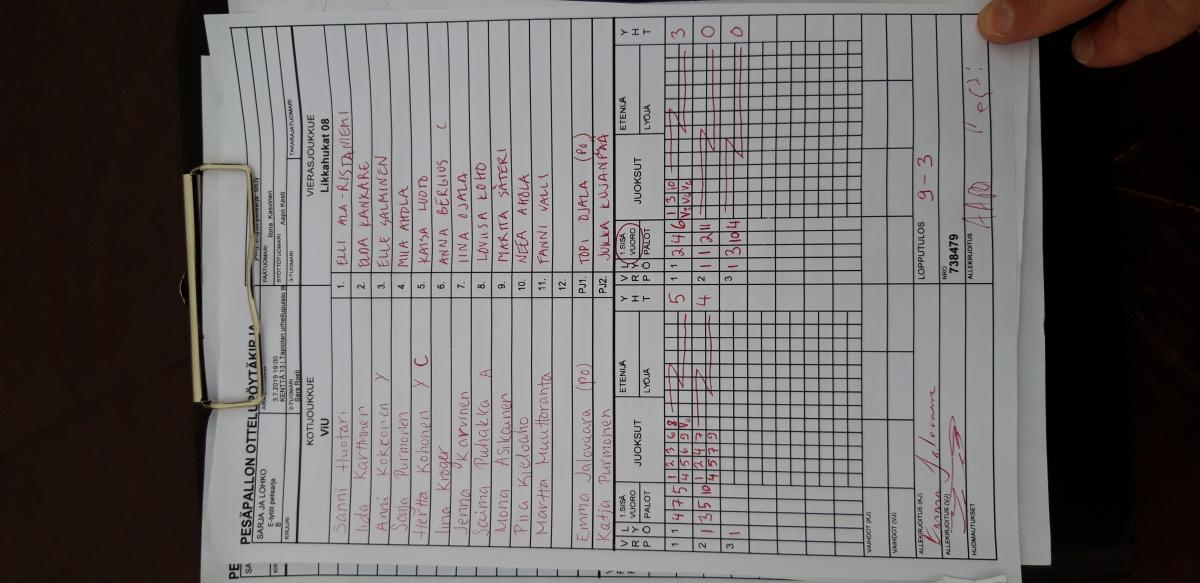 PESÄPALLON OTTELUPÖYTÄKIRJA
SARJA JA LOHKO
E-tytöt pelisarja
B
KIRJURI
3.7.2019 19:00
KENTTÄ 13 | Tapiolan urheilupuisto
2-TUOMARI
Sara Rosti
PÄÄTUOMARI Ilona Kasvinen
SYÖTTÖTUOMARI Aapo Kesti
3-TUOMARI
TAKARAJATUOMARI
KOTIJOUKKUE
ViU
VIERASJOUKKUE
Likkahukat 08
Sanni Huotari 1. ELLI ALA-RISTANIEMI
Iida Karttunen 2. EEDA KANKARE
Anni Kokkonen Y 3. ELLE SALMINEN
Sanja Purmonen 4. MIIA AHOLA
Herttа Kohonen Y C 5. KAISA LUOTO
Iina Kröger 6. ANNA BERGIUS C
Jenna Karvinen 7. IINA OJALA
Saima Puhakka A 8. LOVIISA KOHO
Mona Askainen 9. MARITA SÄTERI
Piia Kieloaho 10. NEEA AHOLA
Martta Muuttoranta 11. FANNI VALLI
12.
Emma Jalovaara (PO) PJ1. TOPI OJALA (PO)
Katja Purmonen PJ2. JUKKA KUJANPÄÄ
V L
R Y
P Ö
1.SISÄ
VUORO
PALOT
JUOKSUT
ETENIJÄ
LYÖJÄ
Y
H
T
V L
R Y
P Ö
1.SISÄ
VUORO
PALOT
JUOKSUT
ETENIJÄ
LYÖJÄ
Y
H
T
1 1 4 7 5 1 2 3 6 8 5
4 5 6 9
1 1 2 4 6 1 3 10 3
2 1 3 5 10 1 2 4 7 4
4 5 7 9
2 1 1 2 11 0
3 1
3 1 3 10 4 0
VAIHDOT (KJ)
VAIHDOT (VJ)
ALLEKIRJOITUS (KJ)
LOPPUTULOS 9-3
ALLEKIRJOITUS (VJ)
NRO
738479
HUOMAUTUKSET
ALLEKIRJOITUS